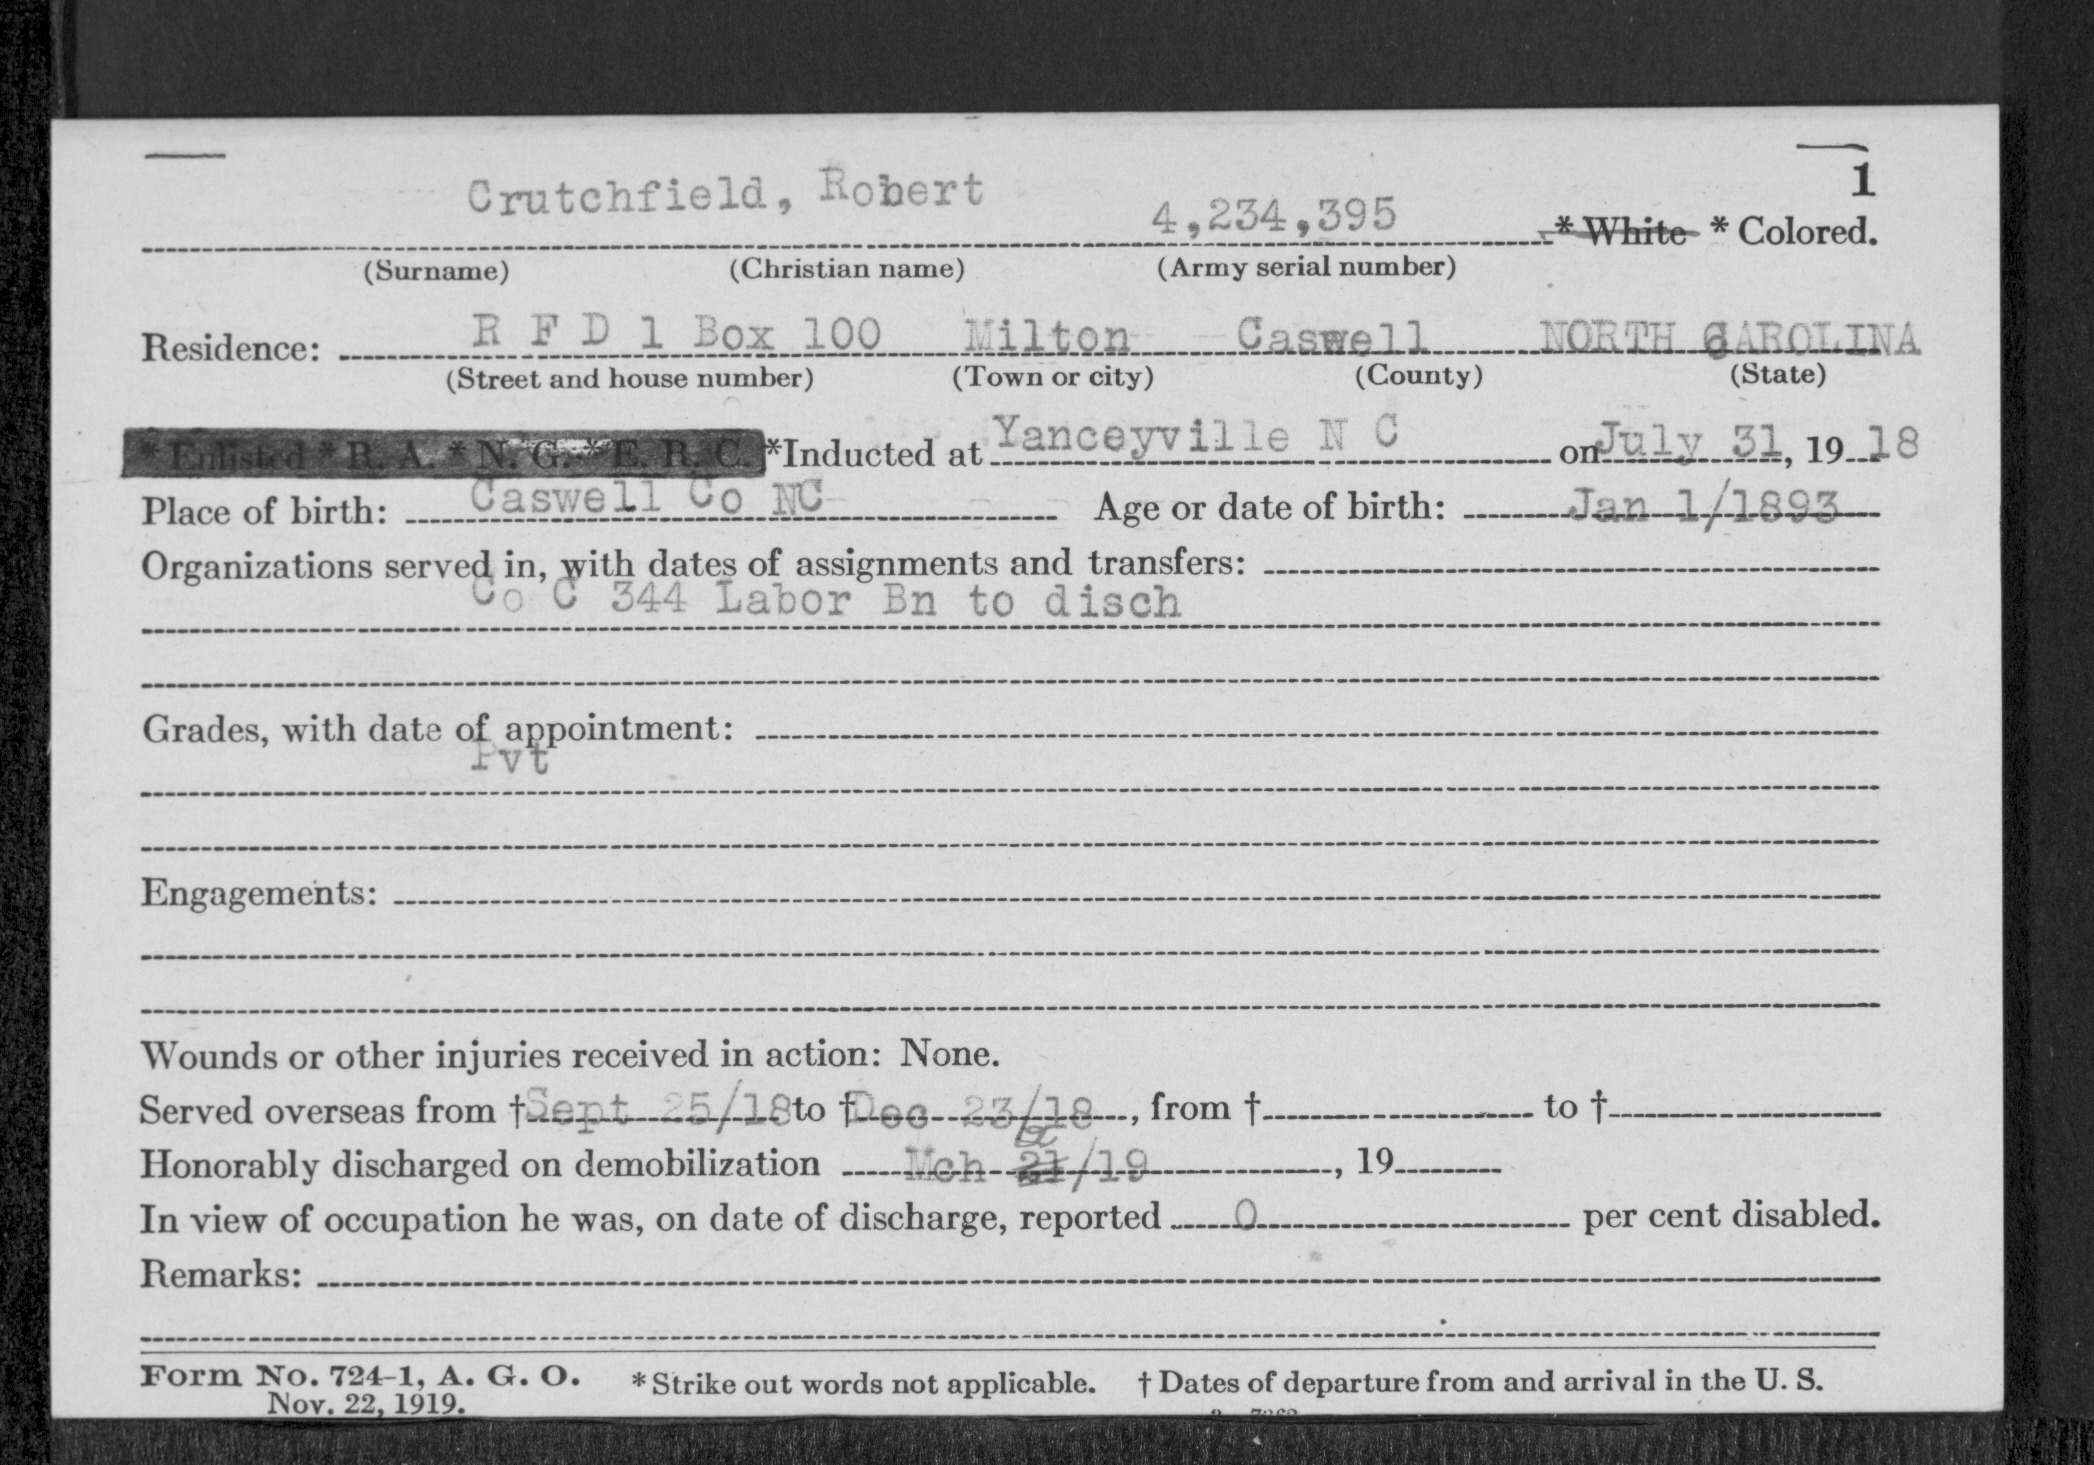 1
Crutchfield, Robert 4,234,395 * White * Colored.
(Surname) (Christian name) (Army serial number)
Residence: R F D 1 Box 100 Milton Caswell NORTH CAROLINA
(Street and house number) (Town or city) (County) (State)
* Enlisted * R. A. * N. G. * E. R. C. *Inducted at Yanceyville N C on July 31, 19 18
Place of birth: Caswell Co NC Age or date of birth: Jan 1/1893
Organizations served in, with dates of assignments and transfers:
Co C 344 Labor Bn to disch
Grades, with date of appointment:
Pvt
Engagements:
Wounds or other injuries received in action: None.
Served overseas from † Sept 25/18 to † Dec 23/18, from † to †
Honorably discharged on demobilization Mch /19, 19
In view of occupation he was, on date of discharge, reported 0 per cent disabled.
Remarks:
Form No. 724-1, A. G. O. * Strike out words not applicable. † Dates of departure from and arrival in the U. S.
Nov. 22, 1919.